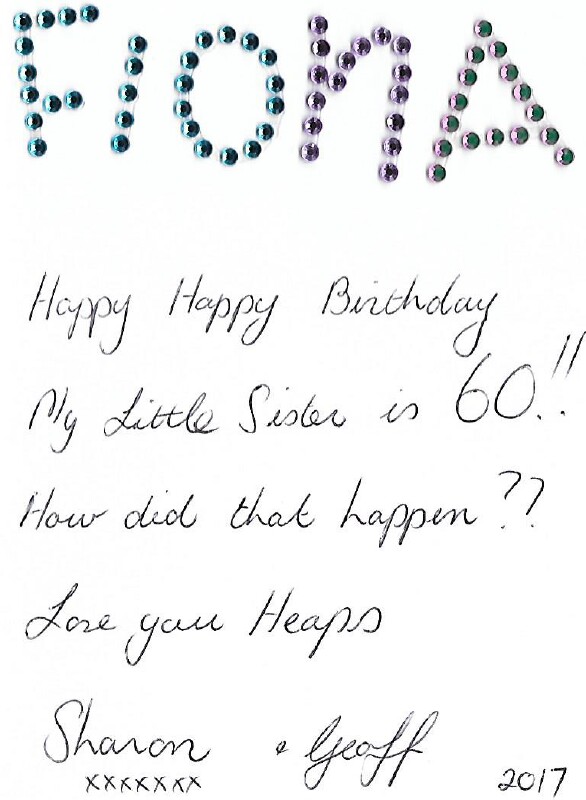 FIONA
Happy Happy Birthday
My Little Sister is 60!!
How did that happen??
Love you Heaps
Sharon & Geoff
xxxxxxx 2017